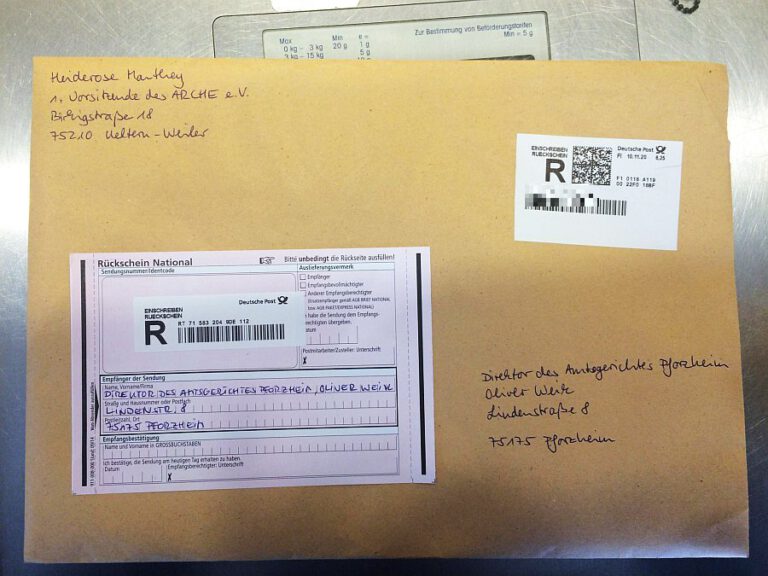 Max Min e=
0 kg - 3 kg 20 g 1 g
3 kg - 15 kg 5 g
Zur Bestimmung von Beförderungstarifen
Min = 5 g
Heiderose Manthey
1. Vorsitzende des ARCHE e.V.
Birkigstraße 18
75210 Keltern-Weiler
EINSCHREIBEN
RUECKSCHEIN
R
Deutsche Post
FI 10.11.20 6,25
F1 0116 A119
00 22F0 16BF
Rückschein National
Bitte unbedingt die Rückseite ausfüllen!
Sendungsnummer/Identcode
Auslieferungsvermerk
Empfänger
Empfangsbevollmächtigter
Anderer Empfangsberechtigter
(Ersatzempfänger gemäß AGB BRIEF NATIONAL
bzw. AGB PAKET/EXPRESS NATIONAL)
habe die Sendung dem Empfangs-
rechtigten übergeben.
Datum
Postmitarbeiter/Zusteller: Unterschrift
X
EINSCHREIBEN
RUECKSCHEIN
R
Deutsche Post
RT 71 583 204 9DE 112
Empfänger der Sendung
Name, Vorname/Firma
DIREKTOR DES AMTSGERICHTES PFORZHEIM, OLIVER WEIK
Straße und Hausnummer oder Postfach
LINDENSTR. 8
Postleitzahl, Ort
75175 PFORZHEIM
Empfangsbestätigung
Name und Vorname in GROSSBUCHSTABEN
Ich bestätige, die Sendung am heutigen Tag erhalten zu haben.
Datum: Empfangsberechtigter: Unterschrift
X
Direktor des Amtsgerichtes Pforzheim
Oliver Weik
Lindenstraße 8
75175 Pforzheim